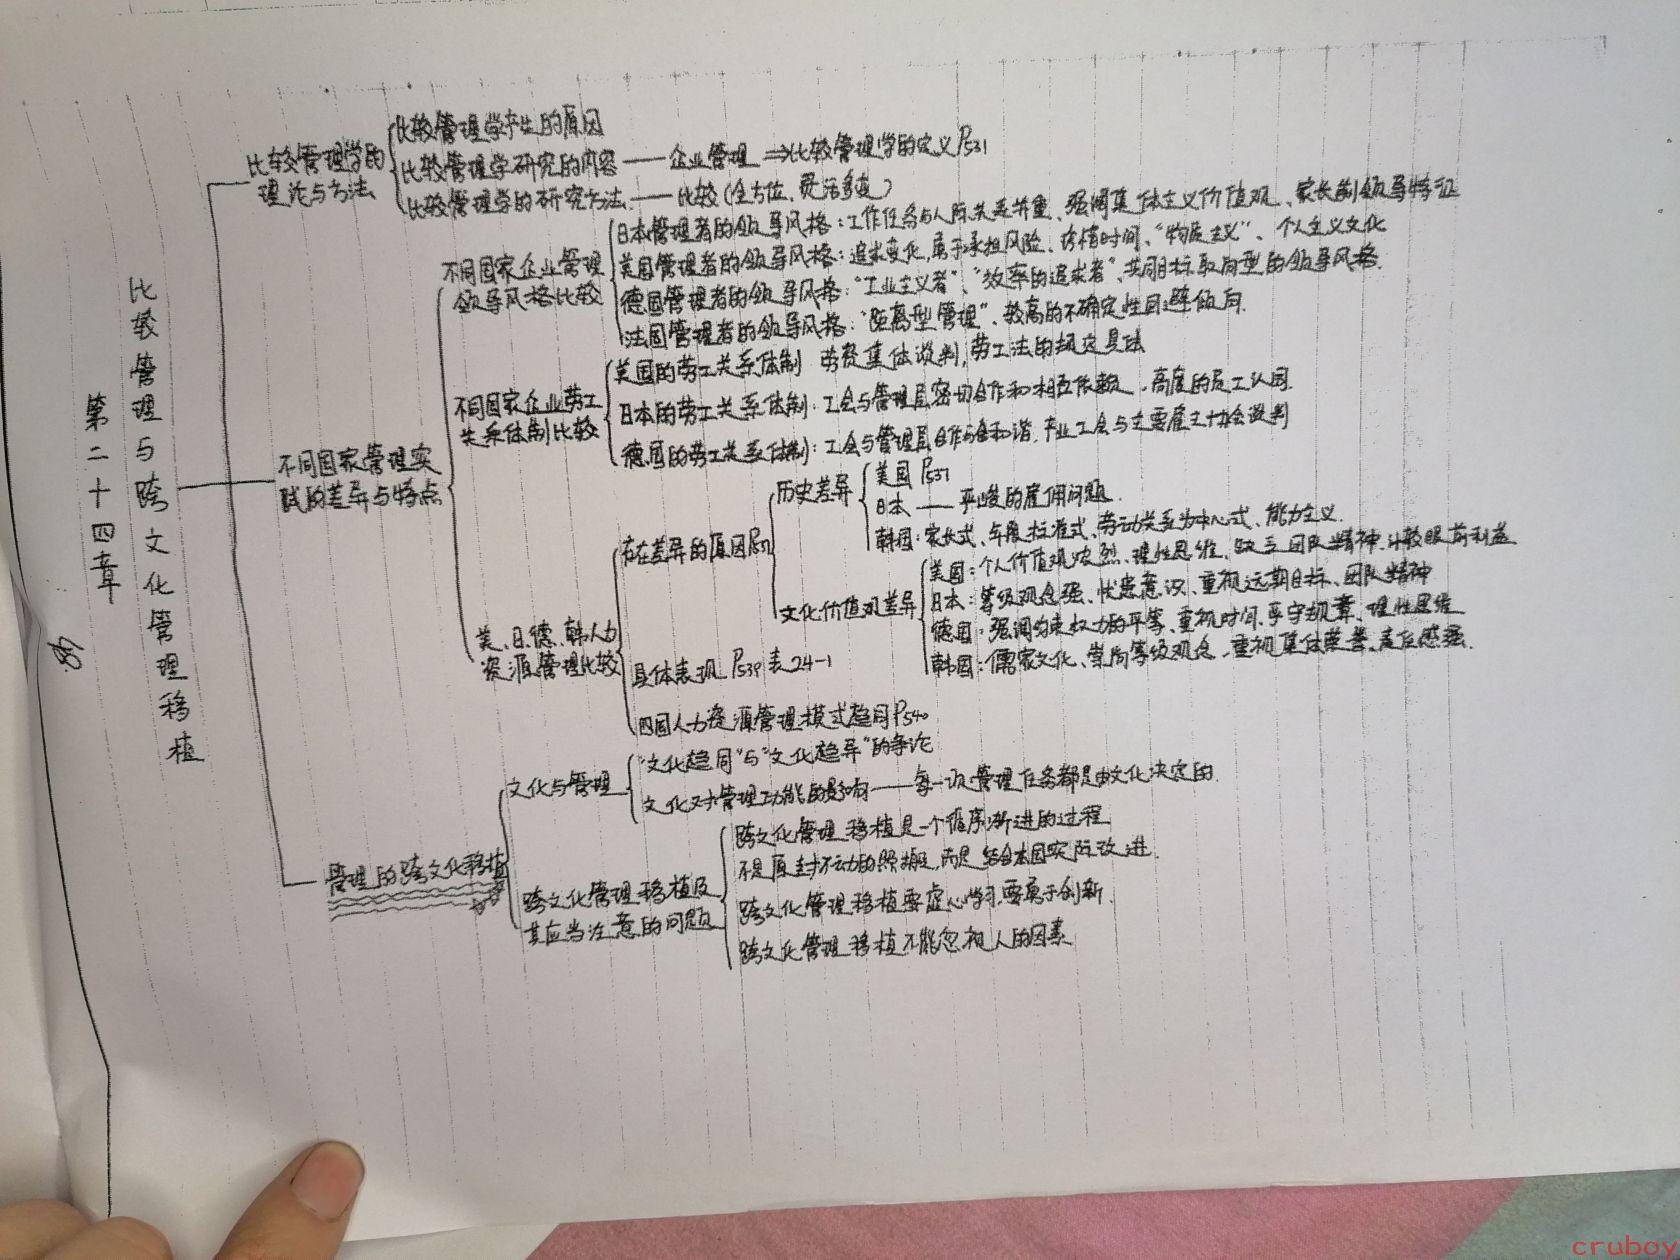 第二十四章
比较管理与跨文化管理移植
比较管理学的
理论与方法
比较管理学产生的原因
比较管理学研究的内容——企业管理⇒比较管理学的定义P531
比较管理学的研究方法——比较(全方位、灵活多变)
不同国家管理实
践的差异与特点
不同国家企业管理
领导风格比较
日本管理者的领导风格:工作任务与人际关系并重、强调集体主义价值观、家长制领导特征
美国管理者的领导风格:追求变化,勇于承担风险、珍惜时间、“物质主义”、个人主义文化
德国管理者的领导风格:“工业主义者”、“效率的追求者”、共同目标取向型的领导风格.
法国管理者的领导风格:“距离型管理”、较高的不确定性回避倾向.
不同国家企业劳工
关系体制比较
美国的劳工关系体制 劳资集体谈判,劳工法的规定具体
日本的劳工关系体制:工会与管理层密切合作和相互依赖、高度的员工认同.
德国的劳工关系体制:工会与管理层合作与和谐,产业工会与主要雇主协会谈判
美、日、德、韩人力
资源管理比较
存在差异的原因
历史差异
美国P537
日本——严峻的雇佣问题.
韩国:家长式、年度标准式、劳动关系为中心式、能力主义.
文化价值观差异
美国:个人价值观浓烈、理性思维、缺乏团队精神、计较眼前利益
日本:等级观念强、忧患意识、重视远期目标、团队精神
德国:强调约束权力的平等、重视时间、严守规章、理性思维
韩国:儒家文化、崇尚等级观念、重视集体荣誉、责任感强.
具体表现P539表24-1
四国人力资源管理模式趋同P540
管理的跨文化移植
文化与管理
“文化趋同”与“文化趋异”的争论
文化对管理功能的影响——每一项管理任务都是由文化决定的.
跨文化管理移植及
其应当注意的问题
跨文化管理移植是一个循序渐进的过程
不是原封不动的照搬,而是结合本国实际改进.
跨文化管理移植要虚心学习,要勇于创新.
跨文化管理移植不能忽视人的因素
cruboy